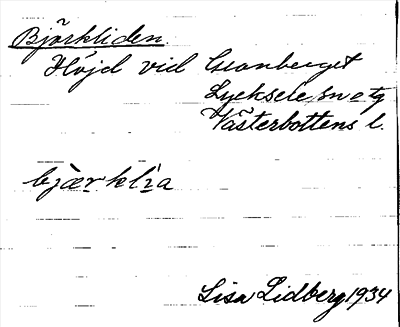 Björkliden
Höjd vid Granberget
Lycksele sn o tg
Västerbottens l.
bjærklia
Lisa Lidberg 1934